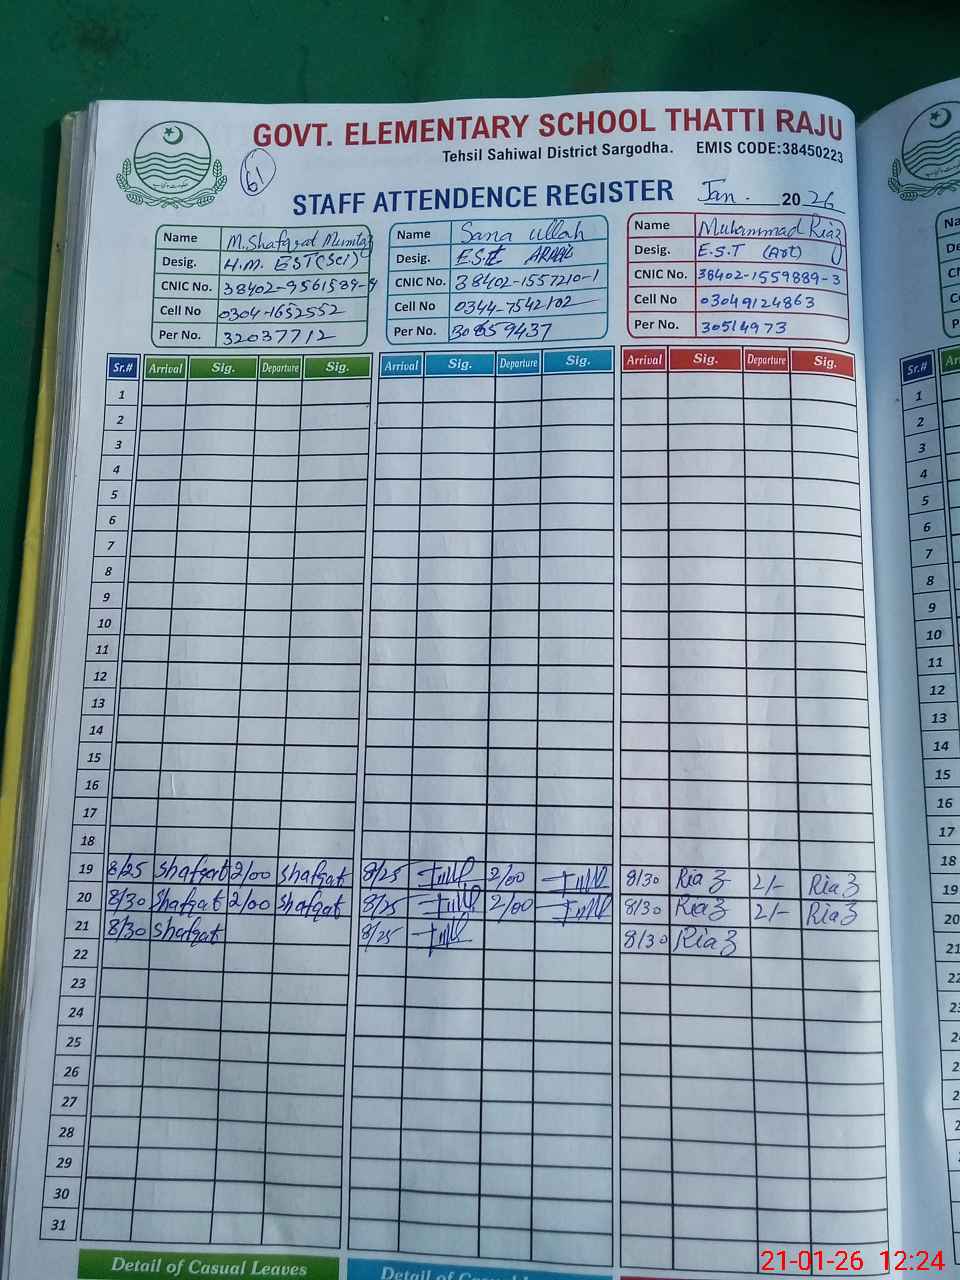 GOVT. ELEMENTARY SCHOOL THATTI RAJU
Tehsil Sahiwal District Sargodha. EMIS CODE:38450223
61
STAFF ATTENDENCE REGISTER Jan. 2026
Name M.Shafqat Mumtaz Name Sana ullah Name Muhammad Riaz
Desig. H.M. EST(Sci) Desig. E.S.T ARABIC Desig. E.S.T (Art)
CNIC No. 38402-9561589-9 CNIC No. 38402-1557210-1 CNIC No. 38402-1559889-3
Cell No 0304-1652552 Cell No 0344-7542102 Cell No 03049124863
Per No. 32037712 Per No. 30659437 Per No. 30514973
Sr.# Arrival Sig. Departure Sig. Arrival Sig. Departure Sig. Arrival Sig. Departure Sig. Sr.#
1 1
2 2
3 3
4 4
5 5
6 6
7 7
8 8
9 9
10 10
11 11
12 12
13 13
14 14
15 15
16 16
17 17
18 18
19 8/25 Shafqat 2/00 Shafqat 8/25 2/00 8/30 Riaz 2/- Riaz 19
20 8/30 Shafqat 2/00 Shafqat 8/25 2/00 8/30 Riaz 2/- Riaz 20
21 8/30 Shafqat 8/25 8/30 Riaz 21
22 22
23 23
24
25
26
27
28
29
30
31
Detail of Casual Leaves
21-01-26 12:24